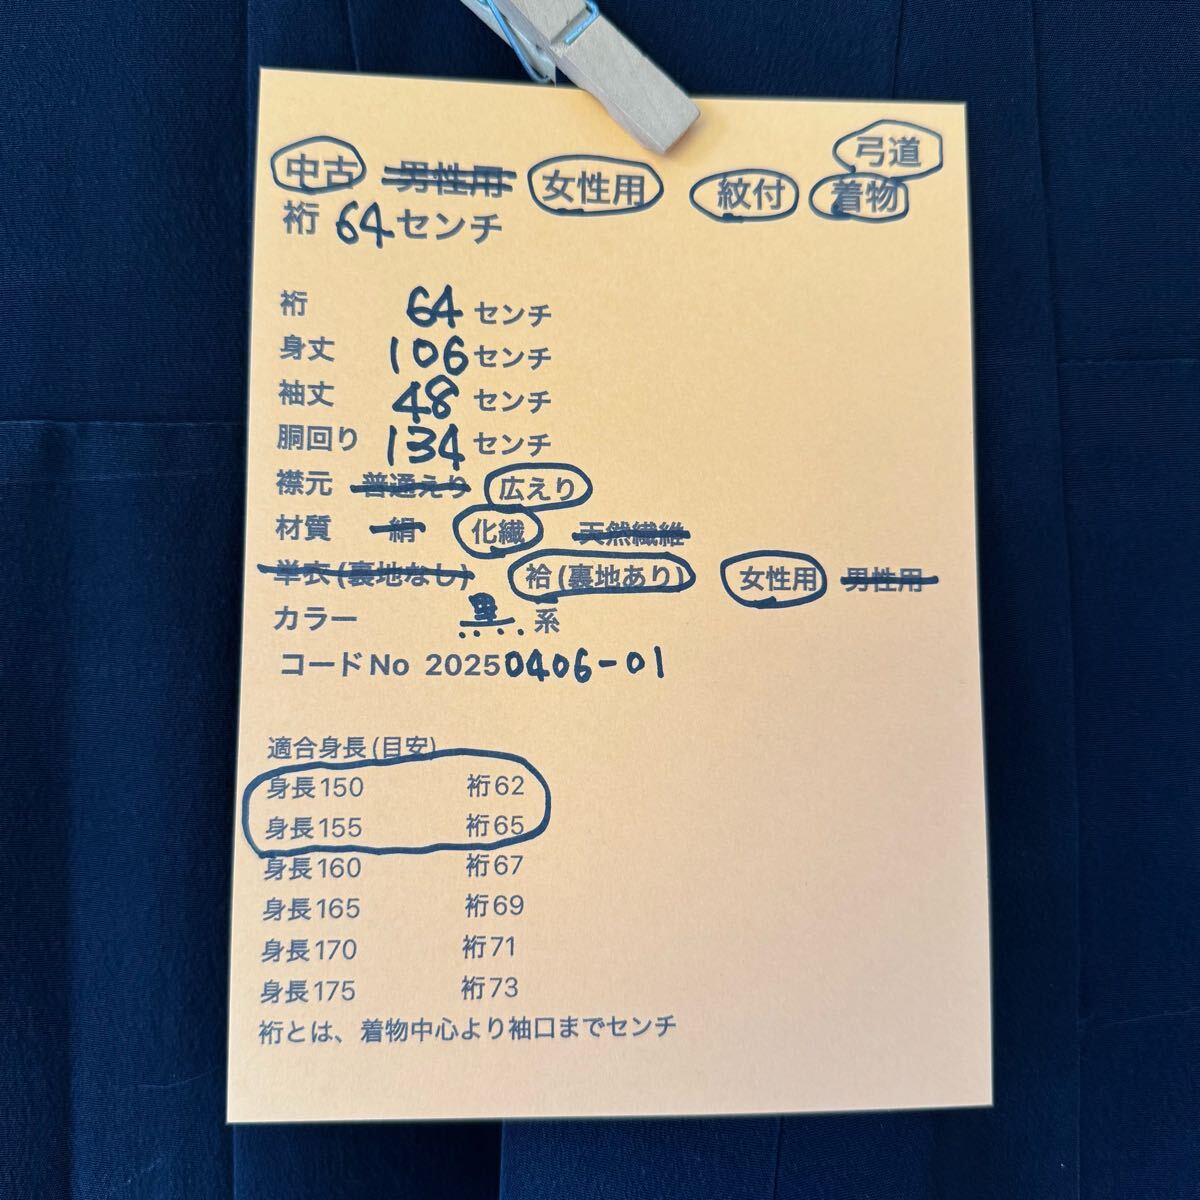 弓道
中古 男性用 女性用 紋付 着物
裄 64 センチ
裄 64 センチ
身丈 106 センチ
袖丈 48 センチ
胴回り 134 センチ
襟元 普通えり 広えり
材質 絹 化繊 天然繊維
単衣(裏地なし) 袷(裏地あり) 女性用 男性用
カラー 黒 系
コードNo 20250406-01
適合身長(目安)
身長150 裄62
身長155 裄65
身長160 裄67
身長165 裄69
身長170 裄71
身長175 裄73
裄とは、着物中心より袖口までセンチ